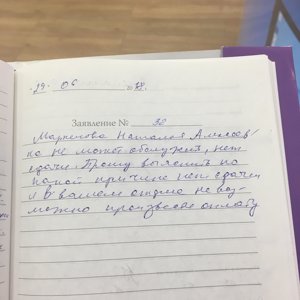 "19" 06 2018.
Заявление № 32
Маркелова Наталья Алексеев-
на не может обслужить, нет
сдачи. Прошу выяснить по
какой причине нет сдачи
и в вашем отделе не воз-
можно произвести оплату